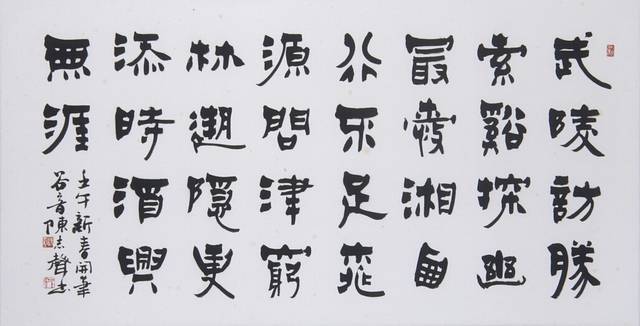 武陵訪勝
索谿探幽
最愛湘西
行不足桃
源問津窮
林遯隱更
添時酒興
無涯
壬午新春開筆
谷音陳志聲書